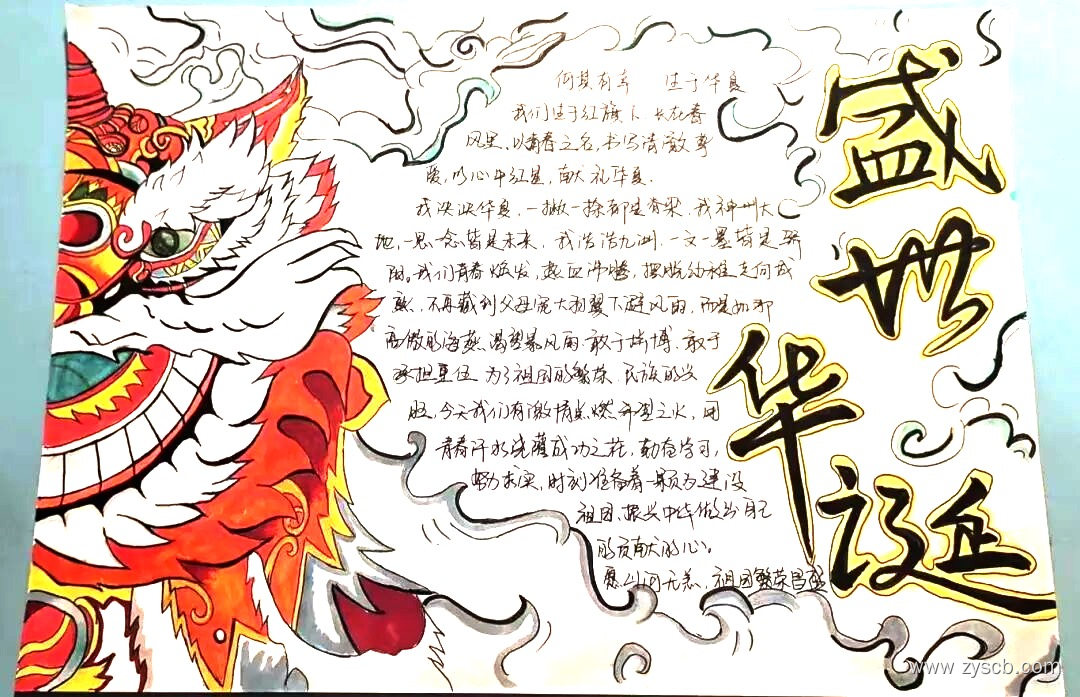 盛世华诞
何其有幸 生于华夏
我们生于红旗下长在春
风里，以青春之名，书写清澈挚
爱，以心中红星，献礼华夏．
我泱泱华夏，一撇一捺都是脊梁，我神州大
地，一思一念皆是未来，我浩浩九洲，一文一墨皆是骄
阳。我们青春焕发，热血沸腾，摆脱幼稚走向成
熟，不再藏到父母宽大羽翼下避风雨，而是如那
高傲的海燕，渴望暴风雨．敢于拼搏，敢于
承担重任 为了祖国的繁荣 民族的兴
旺，今天我们有激情点燃希望之火，用
青春汗水浇灌成功之花，勤奋学习，
努力求实，时刻准备着一颗为建设
祖国、振兴中华做出自己
的贡献的心。
愿山河无恙、祖国繁荣昌盛
www.zyscb.com